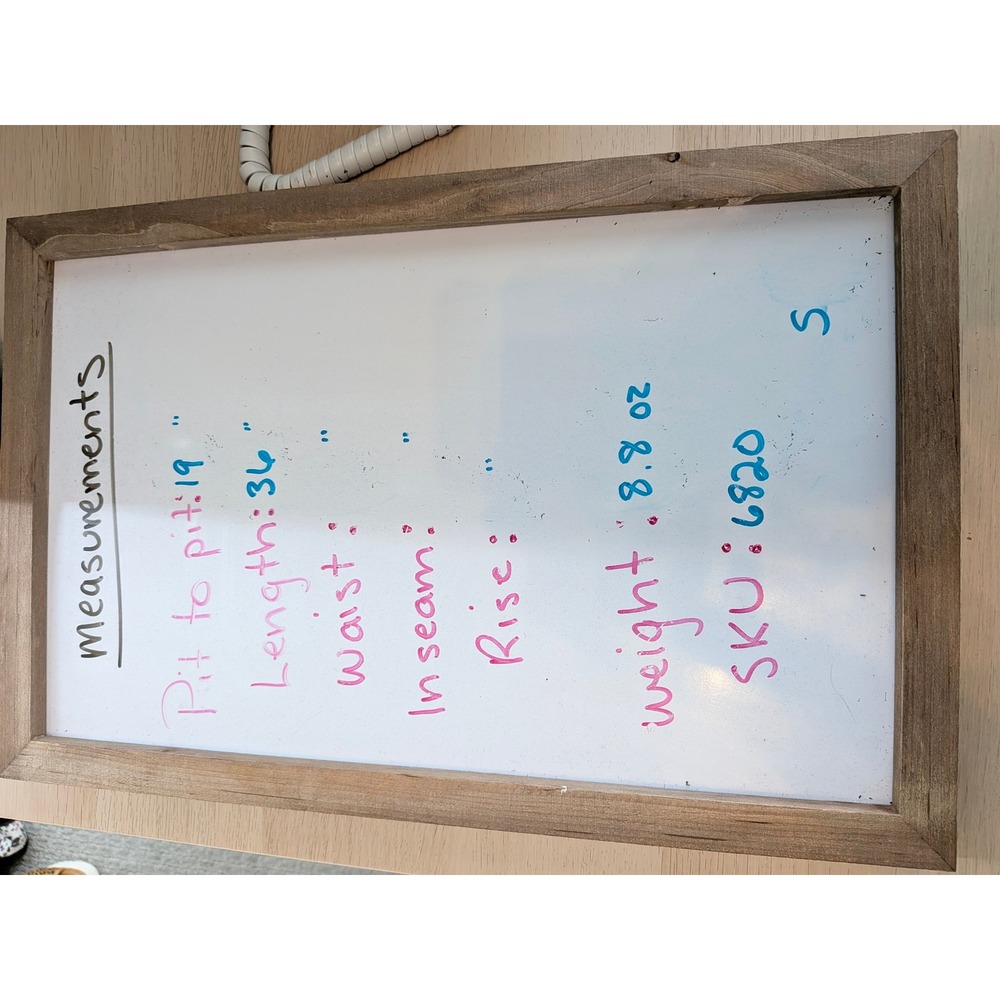 Measurements
Pit to pit: 19 "
Length: 36 "
Waist: "
Inseam: "
Rise: "
Weight: 8.8 oz
SKU: 6820
S